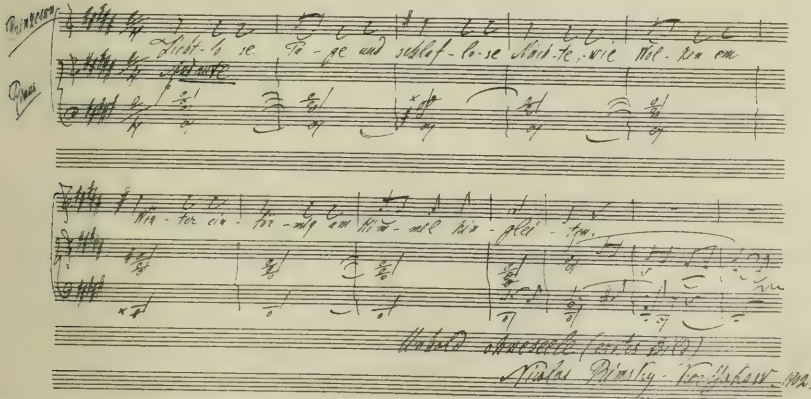 Prinzessin
Licht-lo-se Ta-ge und schlaf-lo-se Näch-te, wie Wol-ken em
Andante
Piano
Win-ter ein-tör-mig am Him-mel hin-glei-ten.
Unhold ohneseele (erstes Bild)
Nicolas Rimsky-Korssakow 1902.